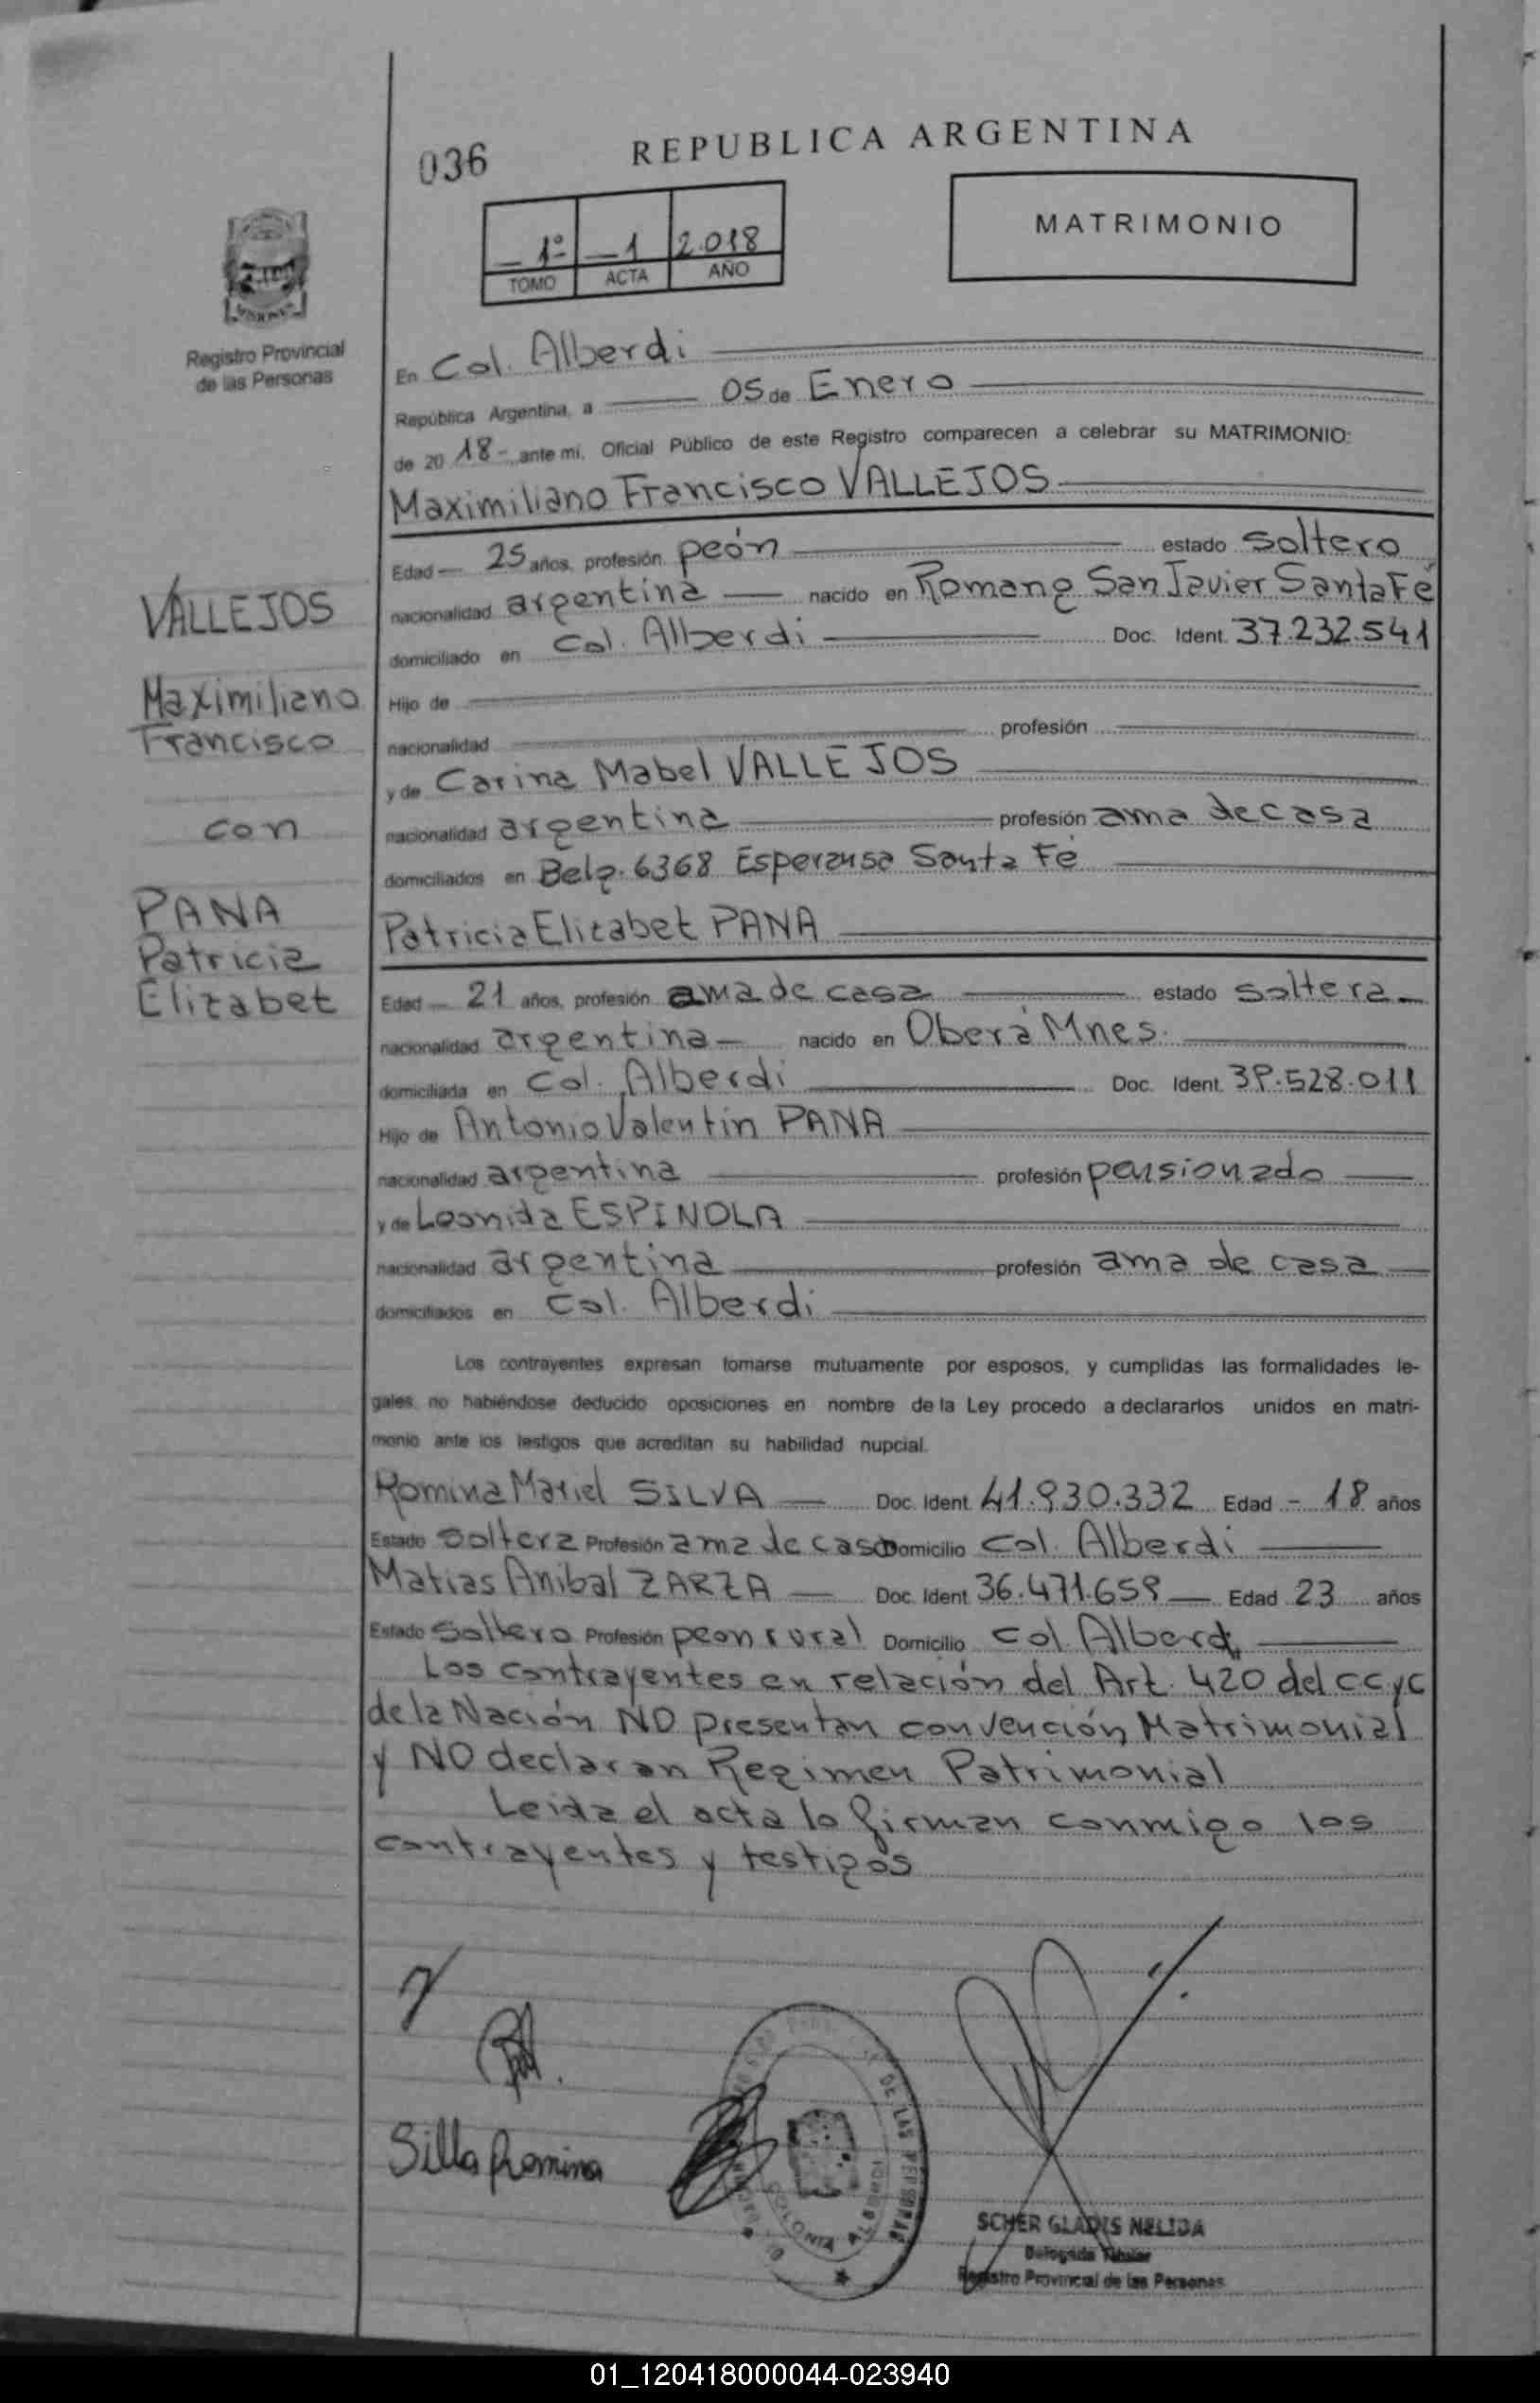 036
REPUBLICA ARGENTINA
1º 1 2.018
TOMO ACTA AÑO
MATRIMONIO
Registro Provincial
de las Personas
En Col. Alberdi
República Argentina, a 05 de Enero
de 20 18 - ante mí, Oficial Público de este Registro comparecen a celebrar su MATRIMONIO:
Maximiliano Francisco VALLEJOS
Edad 25 años, profesión peón estado soltero
nacionalidad argentina nacido en Romang San Javier Santa Fé
domiciliado en Col. Alberdi Doc. Ident. 37.232.541
Hijo de
nacionalidad profesión
y de Carina Mabel VALLEJOS
nacionalidad argentina profesión ama de casa
domiciliados en Belg. 6368 Esperansa Santa Fé
VALLEJOS
Maximiliano
Francisco
con
PANA
Patricia
Elizabet
Patricia Elizabet PANA
Edad 21 años, profesión ama de casa estado soltera
nacionalidad argentina nacido en Oberá Mnes.
domiciliada en Col. Alberdi Doc. Ident. 39.528.011
Hijo de Antonio Valentin PANA
nacionalidad argentina profesión pensionado
y de Leonida ESPINOLA
nacionalidad argentina profesión ama de casa
domiciliados en Col. Alberdi
Los contrayentes expresan tomarse mutuamente por esposos, y cumplidas las formalidades le-
gales no habiéndose deducido oposiciones en nombre de la Ley procedo a declararlos unidos en matri-
monio ante los testigos que acreditan su habilidad nupcial.
Romina Mariel SILVA Doc. Ident. 41.930.332 Edad - 18 años
Estado soltera Profesión ama de casa Domicilio Col. Alberdi
Matias Anibal ZARZA Doc. Ident. 36.471.659 Edad 23 años
Estado soltero Profesión peon rural Domicilio Col. Alberdi
Los contrayentes en relación del Art. 420 del CCyC
de la Nación NO presentan convención Matrimonial
y NO declaran Regimen Patrimonial
Leida el acta lo firman conmigo los
contrayentes y testigos
Silla Romina
DE LAS PERSONAS
COLONIA
SCHER GLADIS NELIDA
Delegada Titular
Registro Provincial de las Personas
01_120418000044-023940